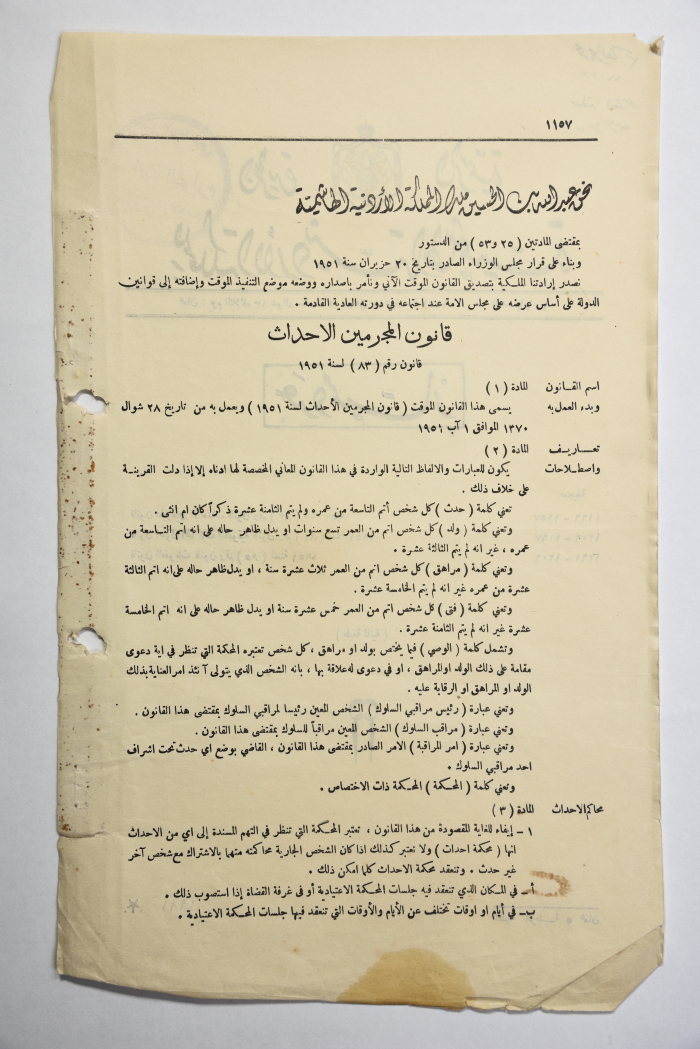 ١١٥٧
نحن عبد الله بن الحسين ملك المملكة الأردنية الهاشمية
بمقتضى المادتين ( ٢٥ و ٥٣ ) من الدستور
وبناء على قرار مجلس الوزراء الصادر بتاريخ ٢٠ حزيران سنة ١٩٥١
نصدر إرادتنا الملكية بتصديق القانون الموقت الآتي ونأمر باصداره ووضعه موضع التنفيذ الموقت وإضافته إلى قوانين
الدولة على أساس عرضه على مجلس الامة عند اجتماعه في دورته العادية القادمة .
قانون المجرمين الاحداث
قانون رقم ( ٨٣ ) لسنة ١٩٥١
اسم القانون المادة ( ١ )
وبدء العمل به يسمى هذا القانون الموقت ( قانون المجرمين الأحداث لسنة ١٩٥١ ) ويعمل به من تاريخ ٢٨ شوال
١٣٧٠ الموافق ١ آب ١٩٥١ .
تعاريف المادة ( ٢ )
واصطلاحات يكون للعبارات والالفاظ التالية الواردة في هذا القانون المعاني المخصصة لها ادناه إلا إذا دلت القرينة
على خلاف ذلك .
تعني كلمة ( حدث ) كل شخص أتم التاسعة من عمره ولم يتم الثامنة عشرة ذكراً كان ام انثى .
وتعني كلمة ( ولد ) كل شخص اتم من العمر تسع سنوات او يدل ظاهر حاله على انه اتم التاسعة من
عمره ، غير انه لم يتم الثالثة عشرة .
وتعني كلمة ( مراهق ) كل شخص اتم من العمر ثلاث عشرة سنة ، او يدل ظاهر حاله على انه اتم الثالثة
عشرة من عمره غير انه لم يتم الخامسة عشرة .
وتعني كلمة ( فتى ) كل شخص اتم من العمر خمس عشرة سنة او يدل ظاهر حاله على انه اتم الخامسة
عشرة غير انه لم يتم الثامنة عشرة .
وتشمل كلمة ( الوصي ) فيما يختص بولد او مراهق ، كل شخص تعتبره المحكمة التي تنظر في اية دعوى
مقامة على ذلك الولد او المراهق ، او في دعوى له علاقة بها ، بانه الشخص الذي يتولى آنئذ امر العناية بذلك
الولد او المراهق او الرقابة عليه .
وتعني عبارة ( رئيس مراقبي السلوك ) الشخص المعين رئيسا لمراقبي السلوك بمقتضى هذا القانون .
وتعني عبارة ( مراقب السلوك ) الشخص المعين مراقباً للسلوك بمقتضى هذا القانون .
وتعني عبارة ( امر المراقبة ) الامر الصادر بمقتضى هذا القانون ، القاضي بوضع اي حدث تحت اشراف
احد مراقبي السلوك .
وتعني كلمة ( المحكمة ) المحكمة ذات الاختصاص .
محاكم الاحداث المادة ( ٣ )
١ – إيفاء للغاية المقصودة من هذا القانون ، تعتبر المحكمة التي تنظر في التهم المسندة إلى اي من الاحداث
انها ( محكمة احداث ) ولا تعتبر كذلك اذا كان الشخص الجارية محاكمته متهما بالاشتراك مع شخص آخر
غير حدث . وتنعقد محكمة الاحداث كلما امكن ذلك .
أ – في المكان الذي تنعقد فيه جلسات المحكمة الاعتيادية أو في غرفة القضاة إذا استصوب ذلك .
ب – في أيام او اوقات تختلف عن الأيام والأوقات التي تنعقد فيها جلسات المحكمة الاعتيادية .